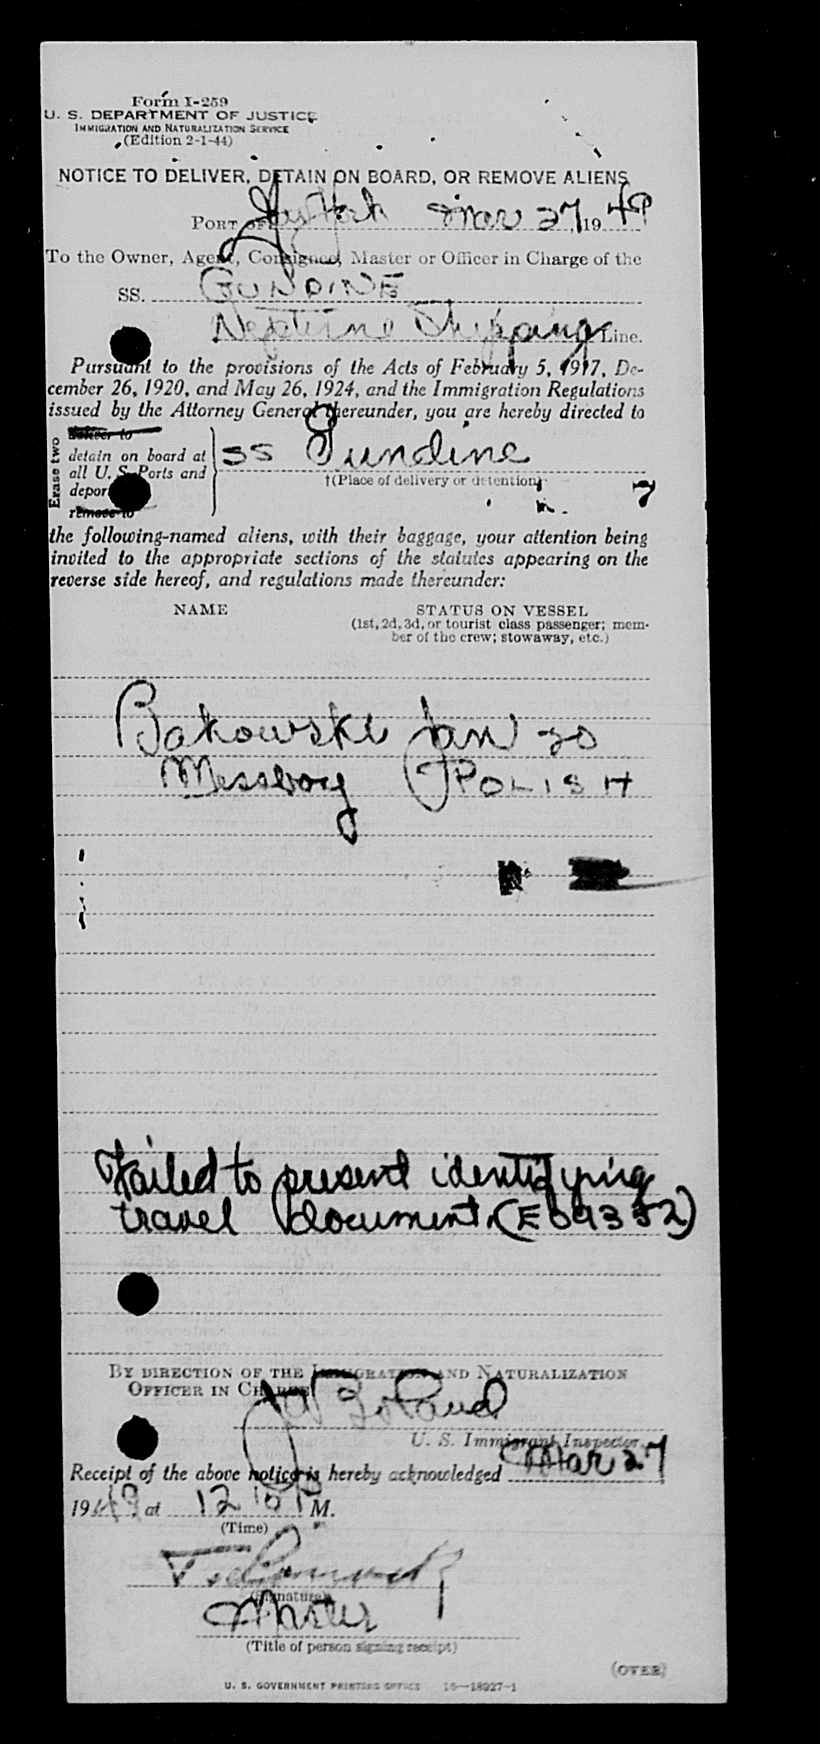 Form I-259
U. S. DEPARTMENT OF JUSTICE
IMMIGRATION AND NATURALIZATION SERVICE
(Edition 2-1-44)
NOTICE TO DELIVER, DETAIN ON BOARD, OR REMOVE ALIENS
PORT OF New York Mar 27, 1949
To the Owner, Agent, Consignee, Master or Officer in Charge of the
SS. GUNDINE
Neptune Shipping Line.
Pursuant to the provisions of the Acts of February 5, 1917, De-
cember 26, 1920, and May 26, 1924, and the Immigration Regulations
issued by the Attorney General thereunder, you are hereby directed to
Erase two
deliver to
detain on board at
all U. S. Ports and
deport
remove to
SS Gundine
†(Place of delivery or detention)
the following-named aliens, with their baggage, your attention being
invited to the appropriate sections of the statutes appearing on the
reverse side hereof, and regulations made thereunder:
NAME STATUS ON VESSEL
(1st, 2d, 3d, or tourist class passenger; mem-
ber of the crew; stowaway, etc.)
Bakowski Jan 30
Messboy POLISH
Failed to present identifying
travel document. (E09352)
BY DIRECTION OF THE IMMIGRATION AND NATURALIZATION
OFFICER IN CHARGE
U. S. Immigrant Inspector.
Receipt of the above notice is hereby acknowledged Mar 27
1949, at 12 10 P M.
(Time)
(Signature)
Master
(Title of person signing receipt)
(OVER)
U. S. GOVERNMENT PRINTING OFFICE 16—18927-1